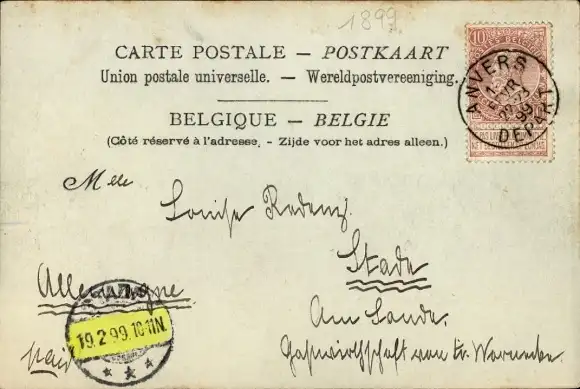 1899
CARTE POSTALE — POSTKAART
Union postale universelle. — Wereldpostvereeniging.
BELGIQUE — BELGIE
(Côté réservé à l'adresse. - Zijde voor het adres alleen.)
10
ANVERS
1
99
DEPART
Mlle
Louise Redenz.
Stade
Allemagne
Am Sande.
19.2.99.10-11N.
Gastwirthschaft von